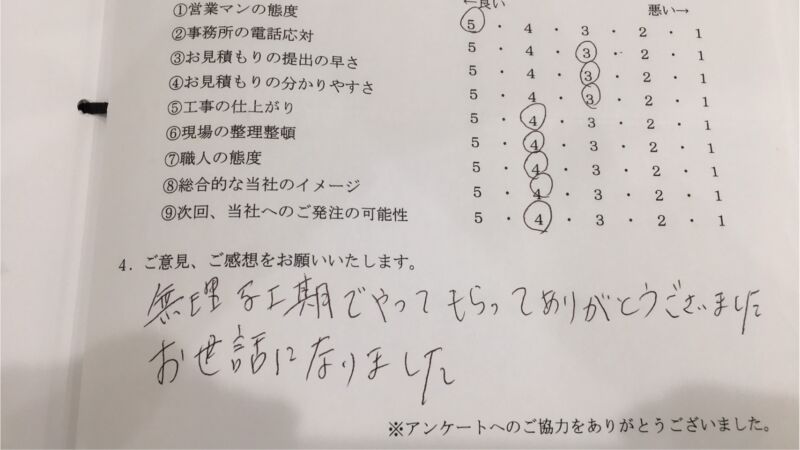 ←良い 悪い→
①営業マンの態度 5 ・ 4 ・ 3 ・ 2 ・ 1
②事務所の電話応対 5 ・ 4 ・ 3 ・ 2 ・ 1
③お見積もりの提出の早さ 5 ・ 4 ・ 3 ・ 2 ・ 1
④お見積もりの分かりやすさ 5 ・ 4 ・ 3 ・ 2 ・ 1
⑤工事の仕上がり 5 ・ 4 ・ 3 ・ 2 ・ 1
⑥現場の整理整頓 5 ・ 4 ・ 3 ・ 2 ・ 1
⑦職人の態度 5 ・ 4 ・ 3 ・ 2 ・ 1
⑧総合的な当社のイメージ 5 ・ 4 ・ 3 ・ 2 ・ 1
⑨次回、当社へのご発注の可能性 5 ・ 4 ・ 3 ・ 2 ・ 1
4．ご意見、ご感想をお願いいたします。
無理な工期でやってもらってありがとうございました
お世話になりました
※アンケートへのご協力をありがとうございました。